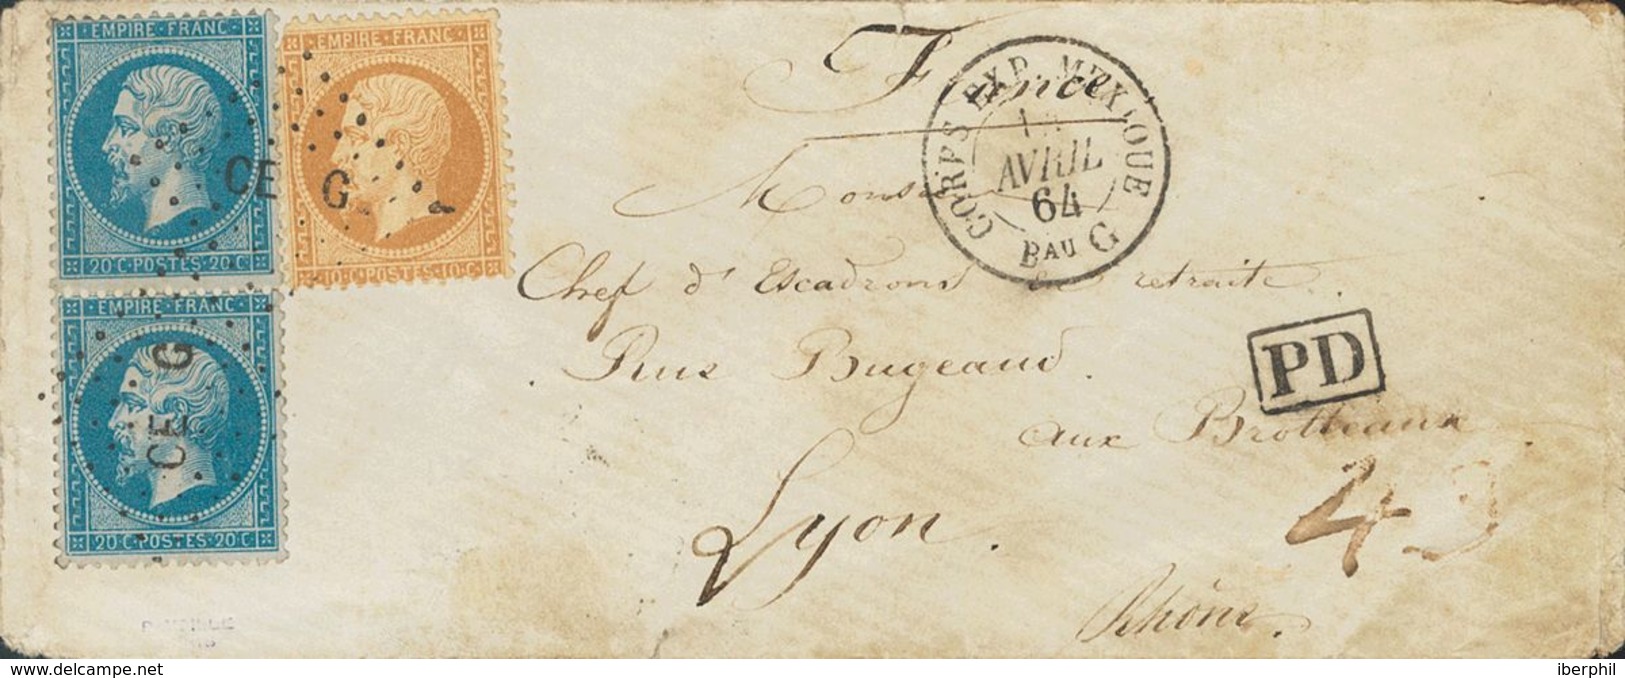 EMPIRE·FRANC·
20·C·POSTES·20·C
EMPIRE·FRANC·
10·C·POSTES·10·C
EMPIRE·FRANC·
20·C·POSTES·20·C
CE G
CE G
CORPS EXP. MEXIQUE
AVRIL
64
BAU G
France
Chef d'Escadrons en retraite.
Rue Bugeaud.
PD
aux Brotteaux
Lyon.
Rhône.
delcampe.net
iberphil